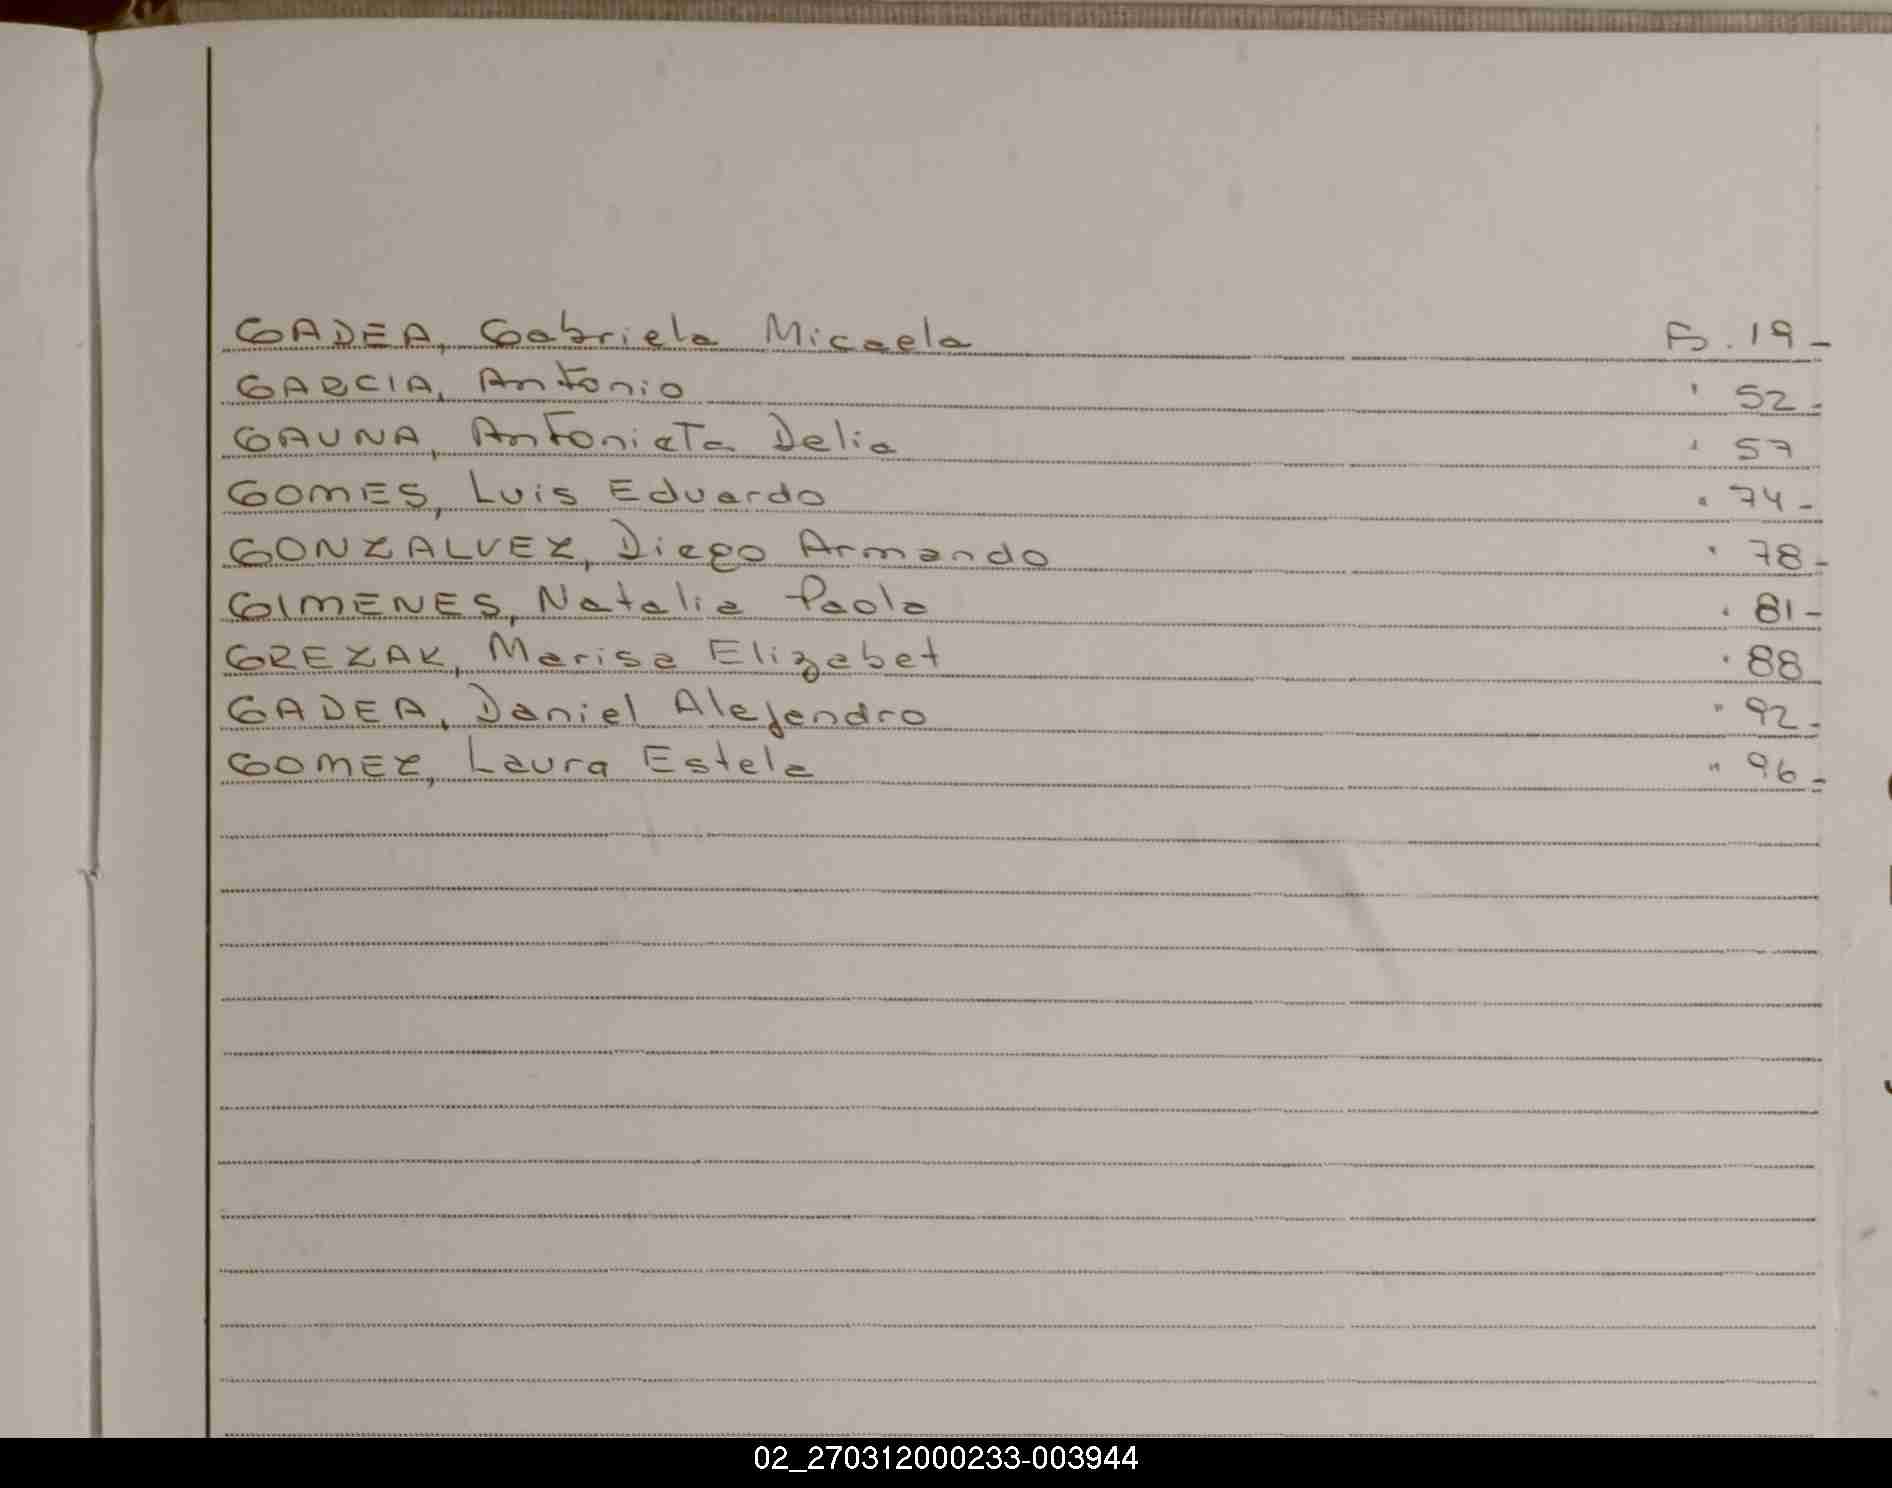 GADEA, Gabriela Micaela Fs. 19-
GARCIA, Antonio " 52-
GAUNA, Antonieta Delia " 57
GOMES, Luis Eduardo " 74-
GONZALVEZ, Diego Armando " 78-
GIMENES, Natalia Paola " 81-
GREZAK, Marisa Elizabet " 88
GADEA, Daniel Alejandro " 92-
GOMEZ, Laura Estela " 96-
02_270312000233-003944